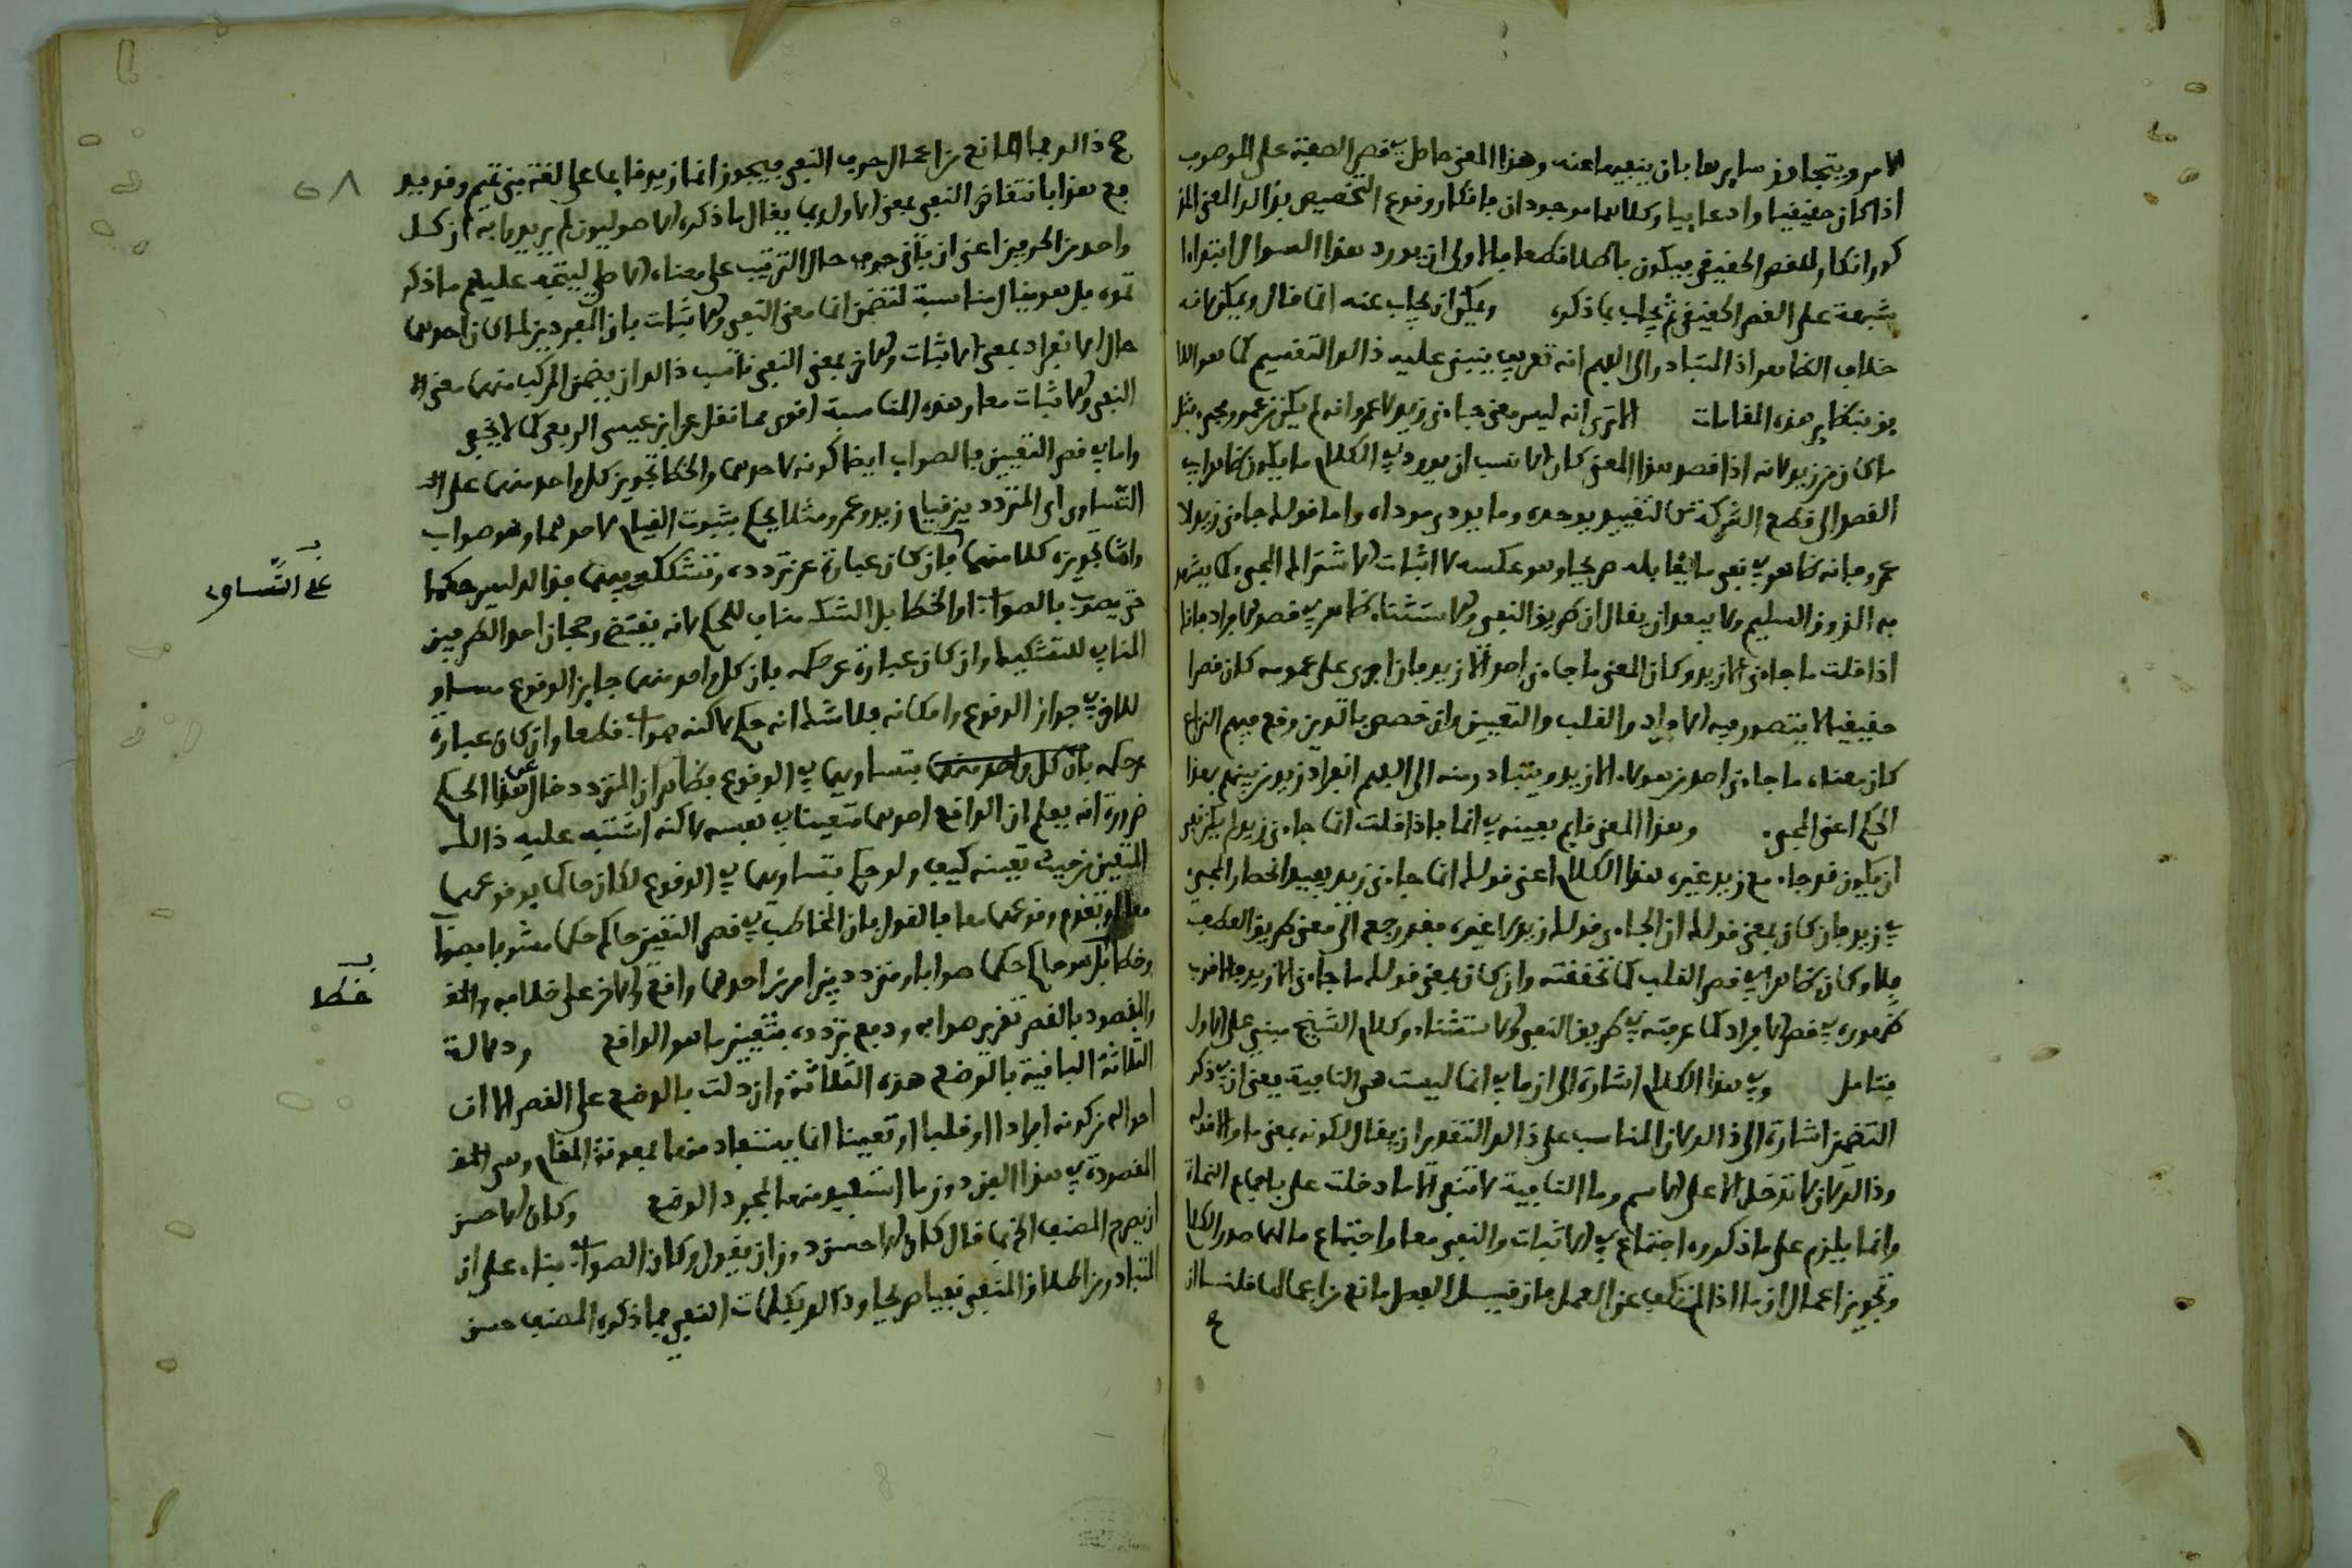 الامر ويتجاوز سايرها بان ينفيها عنه وهذا المعنى حاصل في قصر الصفة على الموصوف
اذا كان حقيقيا وادعاييا وكلاهما موجودان فانكار وقوع التخصيص بذالك المعنى المذ
كور انكار للقصر الحقيقي فيكون باطلا قطعا فالاولى ان يورد هذا السوال ابتداءا
شبهة على القصر الحقيقي ثم يجاب بما ذكره ويمكن ان يجاب عنه انما قال ويمكن لانه
خلاف الظاهر اذ المتبادر الى الفهم انه تعريف يبتنى عليه ذالك التقسيم كما هو اللا
يق بنظاير هذه المقامات الا ترى انه ليس معنى جاءني زيد لا عمرو انه لم يكن من عمرو مجيء مثل
ما كان من زيد لانه اذا قصد هذا المعنى كان الانسب ان يورد في الكلام ما يكون ظاهرا في
القصد الى قطع الشركة كالتقييد بوحده وما يودي موداه واما قولك جاءني زيد لا
عمرو فانه ظاهر في نفي ما يقابله صريحا وهو عكسه لا اثبات الاشتراك في المجيء كما يشهد
به الذوق السليم ولا يبعد ان يقال ان طريق النفي والاستثناء ظاهر في قصر الافراد فانك
اذا قلت ما جاءني الا زيد وكان المعنى ما جاءني احد الا زيد فان اجري على عمومه كان قصرا
حقيقيا لا يتصور فيه الافراد والقلب والتعيين وان خصص بالذين وقع فيهم النزاع
كان معناه ما جاءني احد من هولاء الا زيد ويتبادر منه الى الفهم انفراد زيد من بينهم بهذا
الحكم اعني المجيء وهذا المعنى قايم بعينه في انما فاذا قلت انما جاءني زيد لم يكن نفي
ان يكون قد جاء مع زيد غيره هذا الكلام اعني قولك انما جاءني زيد يفيد انحصار المجيء
في زيد فان كان بمعنى قولك ان الجاءي قولك زيد لا غيره فقد رجع الى معنى طريق العطف
بلا وكان ظاهرا في قصر القلب كما تحققته وان كان بمعنى قولك ما جاءني الا زيد فالاقرب
ظهوره في قصر الافراد كما عرفته في طريق النفي والاستثناء وكلام الشيخ مبني على الاول
فتامل وفي هذا الكلام اشارة الى ان ما في انما ليست هي النافية يعني ان في ذكر
التضمن اشارة الى ذالك لان المناسب على ذالك التقدير ان يقال لكونه بمعنى ما والا قوله
وذالك لان ان لا تدخل الا على الاسم وما النافية لا تنفي الا ما دخلت على باجماع النحاة
وانما يلزم على ما ذكروه اجتماع في الاثبات والنفي معا واجتماع ما لهما صدر الكلام
وتجويز اعمال ان ما اذا لم تكف عن العمل فان قيل الفصل مانع من اعمالها قلنا ان
ع
ع ذالك فما المانع من اعمال حرف النفي فيجوز انما زيد قايما على لغة بني تميم وقد يد
فع هذا بانتقاض النفي بمعنى الا ولربما يقال ما ذكره الاصوليون لم يريدوا به ان كل
واحد من الحرفين اعني ان باق في حال التركيب على معناه الاصلي ليتجه عليهم ما ذكر
تموه بل هو بيان مناسبة لتضمن انما معنى النفي والاثبات فان المفردين لما كان احدهما
حال الانفراد بمعنى الاثبات والاخر بمعنى النفي ناسب ذالك ان يضمن المركب منهما معنى
النفي والاثبات معا وهذه المناسبة اقوى مما نقل عن ابن عيسى الربعي كما لا يخفى
واما في قصر التعيين فالصواب ايضا كونه لاحدهما والخطا تجويز كل واحد منهما على
التساوي اي المتردد بين قيام زيد وعمرو مثلا يحكم بثبوت القيام لاحدهما وهو صواب
واما تجويزه كلا منهما فان كان عبارة عن تردده وتشككه بينهما فذالك ليس حكما
حتى يوصف بالصواب او الخطا بل الشك مناف للحكم لانه يقتضي رجحان احد الطرفين
المنافي للتشكيك وان كان عبارة عن حكمه بان كل واحد منهما جايز الوقوع مساو
للاخر في جواز الوقوع وامكانه فلا شك انه حكم لاكنه صواب قطعا وان كان عبارة
عن حكمه بان كل واحد منهما بتساويهما في الوقوع فظاهر ان المتردد خال عن هذا الحكم
ضرورة انه يعلم ان الواقع احدهما متعينا في نفسه لاكنه اشتبه عليه ذالك
المتعين من حيث تعيينه كيف ولو حكم بتساويهما في الوقوع لكان حاكما بوقوعهما
معا او بعدم وقوعهما معا فالقول بان المخاطب في قصر التعيين حاكم حكما مشوبا بصواب
وخطا بل هو حاكم حكما صوابا ومتردد بين امرين احدهما واقع والاخر على خلافه
والمقصود بالقصر تقرير صوابه ودفع تردده بتعيين ما هو الواقع ودلالة
الثلاثة الباقية بالوضع هذه الثلاثة وان دلت بالوضع على القصر الا ان
احواله من كونه افرادا او قلبا او تعيينا انما يستفاد منها بمعونة المقام وهي
المقصودة في هذا الفن دون ما استفيد منها بمجرد الوضع وكان الاحسن
ان يصرح المصنف الخ انما قال كان الاحسن دون ان يقول وكان الصواب بناء على ان
المتبادر من اطلاق المنفي نفيا صريحا وذالك بكلمات النفي فما ذكره المصنف حسن
على التساوي
خطا